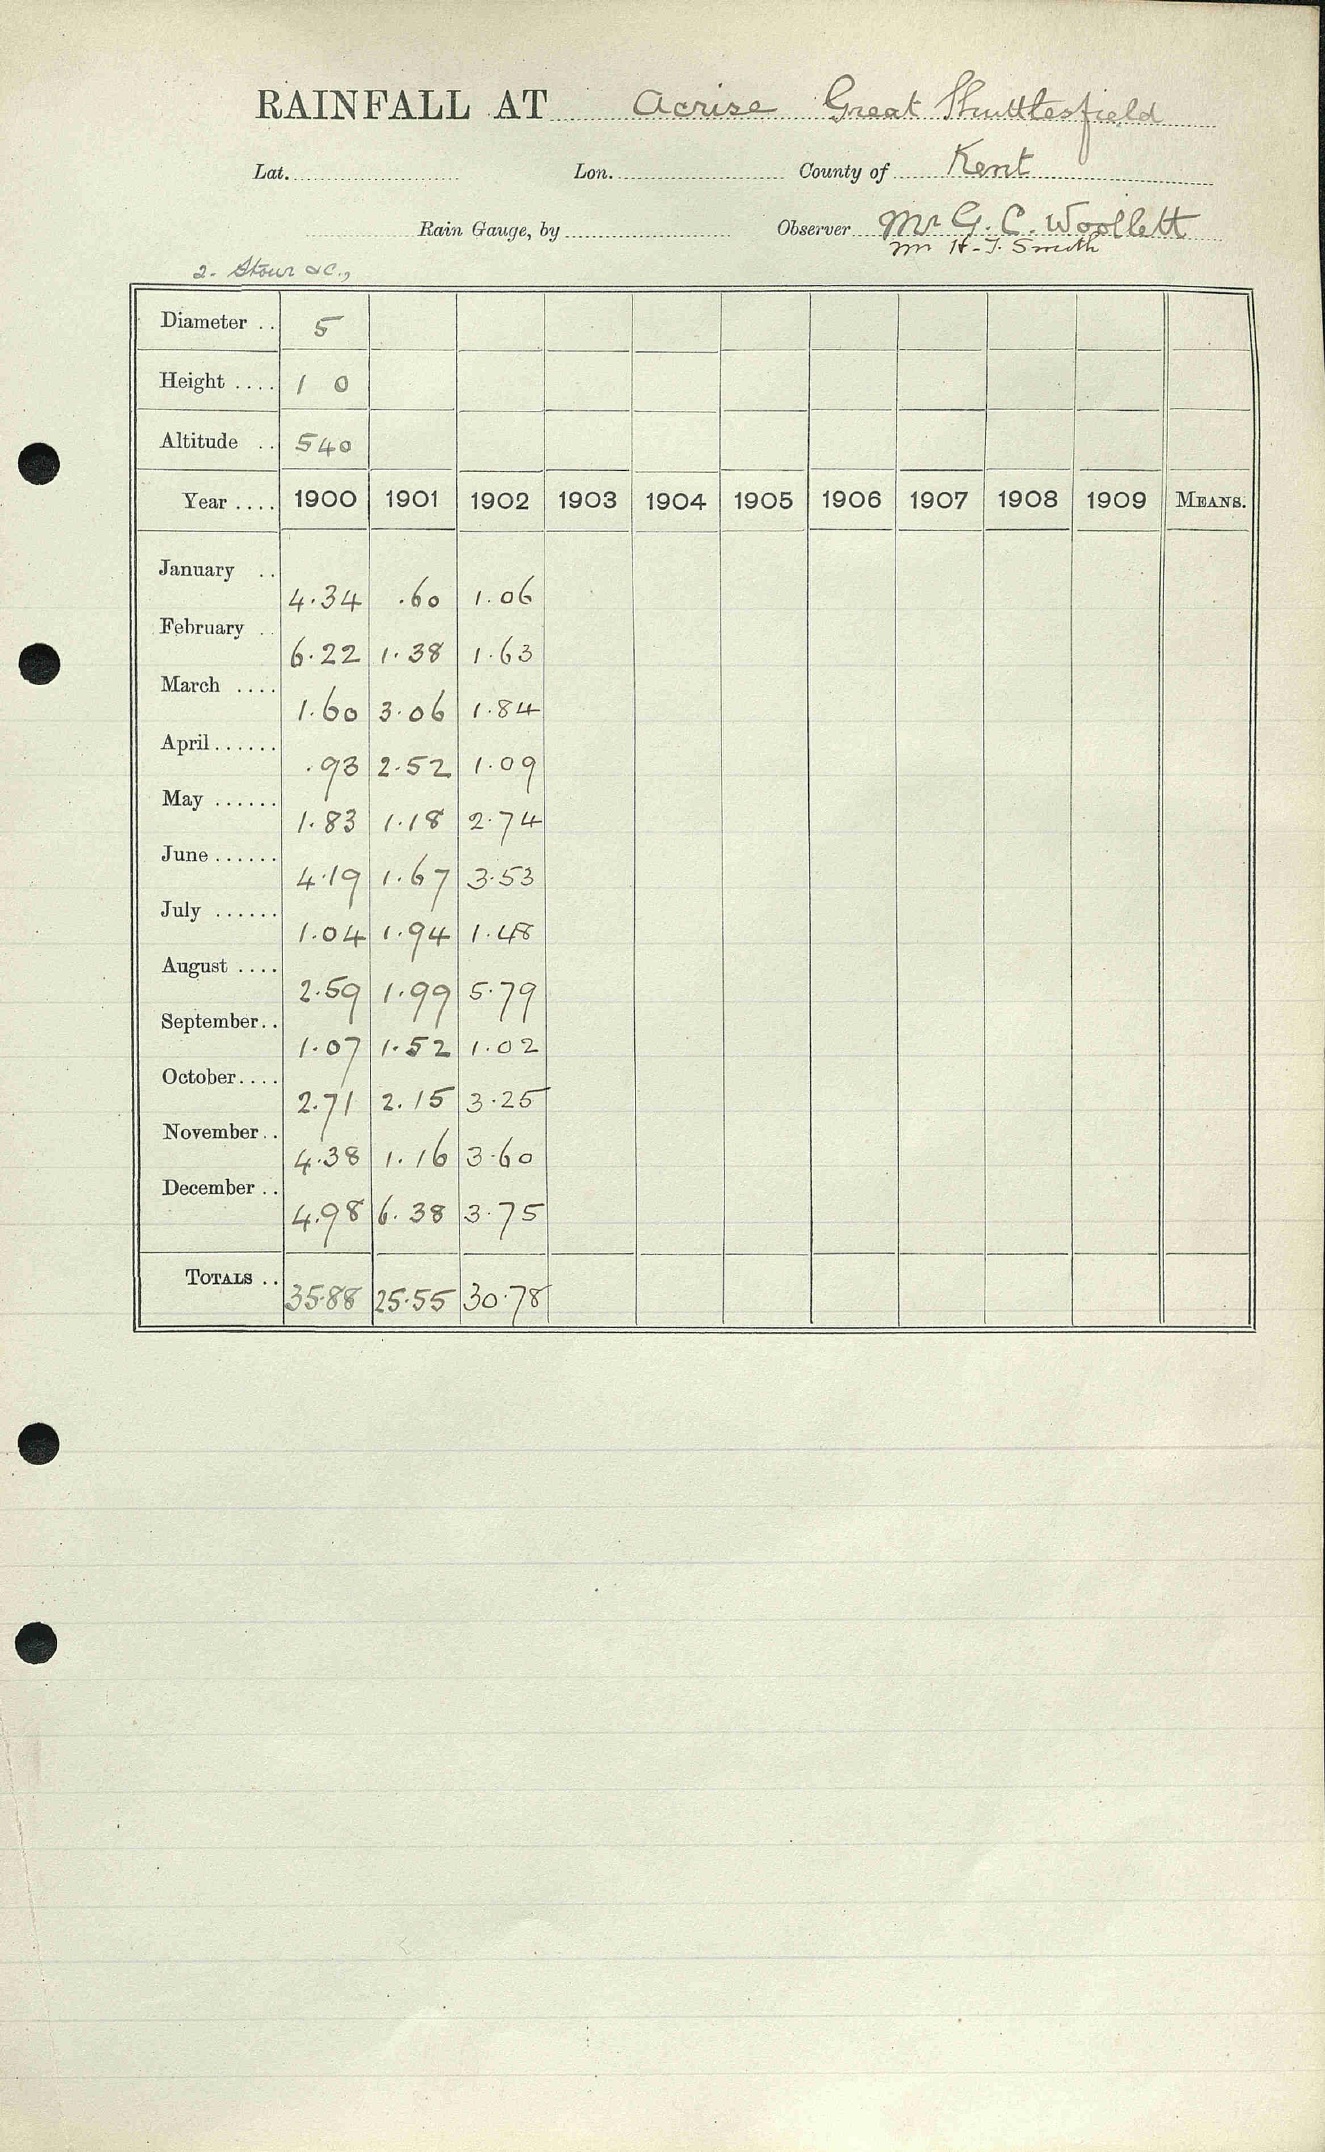 RAINFALL AT Acrise Great Shuttlesfield
Lat. Lon. County of Kent
Rain Gauge, by Observer Mr G. C. Woollett
Mr H. J. Smith
2. Stour &c.,
Diameter .. 5
Height .... 1 0
Altitude .. 540
Year .... 1900 1901 1902 1903 1904 1905 1906 1907 1908 1909 MEANS.
January .. 4.34 .60 1.06
February .. 6.22 1.38 1.63
March .... 1.60 3.06 1.84
April ...... .93 2.52 1.09
May ...... 1.83 1.18 2.74
June ...... 4.19 1.67 3.53
July ...... 1.04 1.94 1.48
August .... 2.59 1.99 5.79
September .. 1.07 1.52 1.02
October .... 2.71 2.15 3.25
November .. 4.38 1.16 3.60
December .. 4.98 6.38 3.75
TOTALS .. 35.88 25.55 30.78